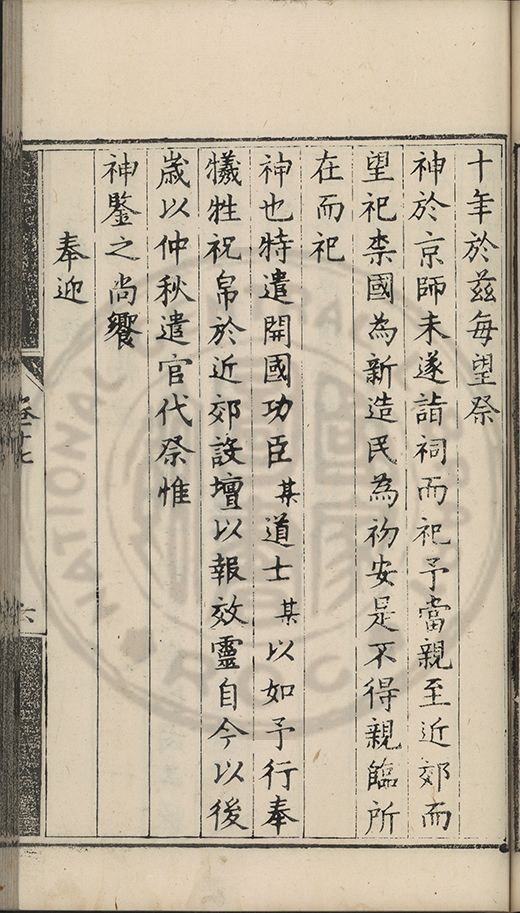 十年於茲每望祭
神於京師未遂詣祠而祀予當親至近郊而
望祀柰國為新造民為初安是不得親臨所
在而祀
神也特遣開國功臣某道士某以如予行奉
犧牲祝帛於近郊設壇以報效靈自今以後
歲以仲秋遣官代祭惟
神鑒之尚饗
奉迎
六